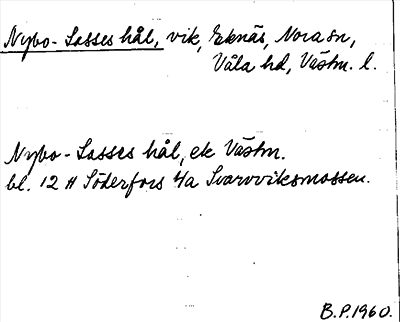 Nybo-Lasses hål, vik, Eknäs, Nora sn,
Våla hd, Västm. l.
Nybo-Lasses hål, ek Västm.
bl. 12 H Söderfors 4/a Svarvviksmossen.
B.P. 1960.